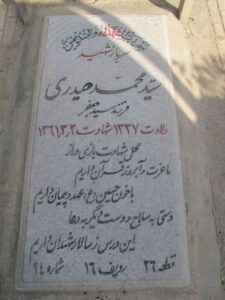 سرباز شهید
سید محمد حیدری
فرزند سید جعفر
ولادت ۱۳۳۷ شهادت ۱۳۶۱،۳،۲
محل شهادت بازی دراز
ما عزت و آبرو ز قرآن داریم
با خون حسین (ع) عهد و پیمان داریم
دستی به سلاح و دست دیگر به دعا
این درس ز سالار شهیدان داریم
قطعه ۲۶ ردیف ۱۶ شماره ۹۴